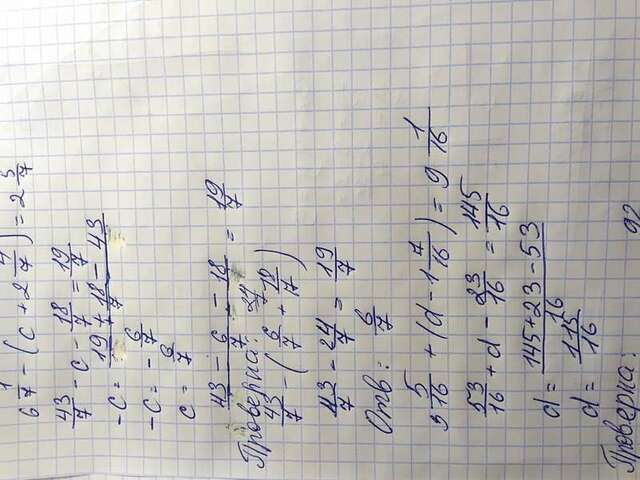 6 1/7 - (c + 2 4/7) = 2 5/7
43/7 - c - 18/7 = 19/7
-c = (19 + 18 - 43)/7
-c = - 6/7
c = 6/7
(43 - 6 - 18)/7 = 19/7
Проверка: 24/7
43/7 - (6/7 + 18/7)
43/7 - 24/7 = 19/7
Отв: 6/7
3 5/16 + (d - 1 7/16) = 9 1/16
53/16 + d - 23/16 = 145/16
d = (145 + 23 - 53)/16
d = 115/16
Проверка: 92